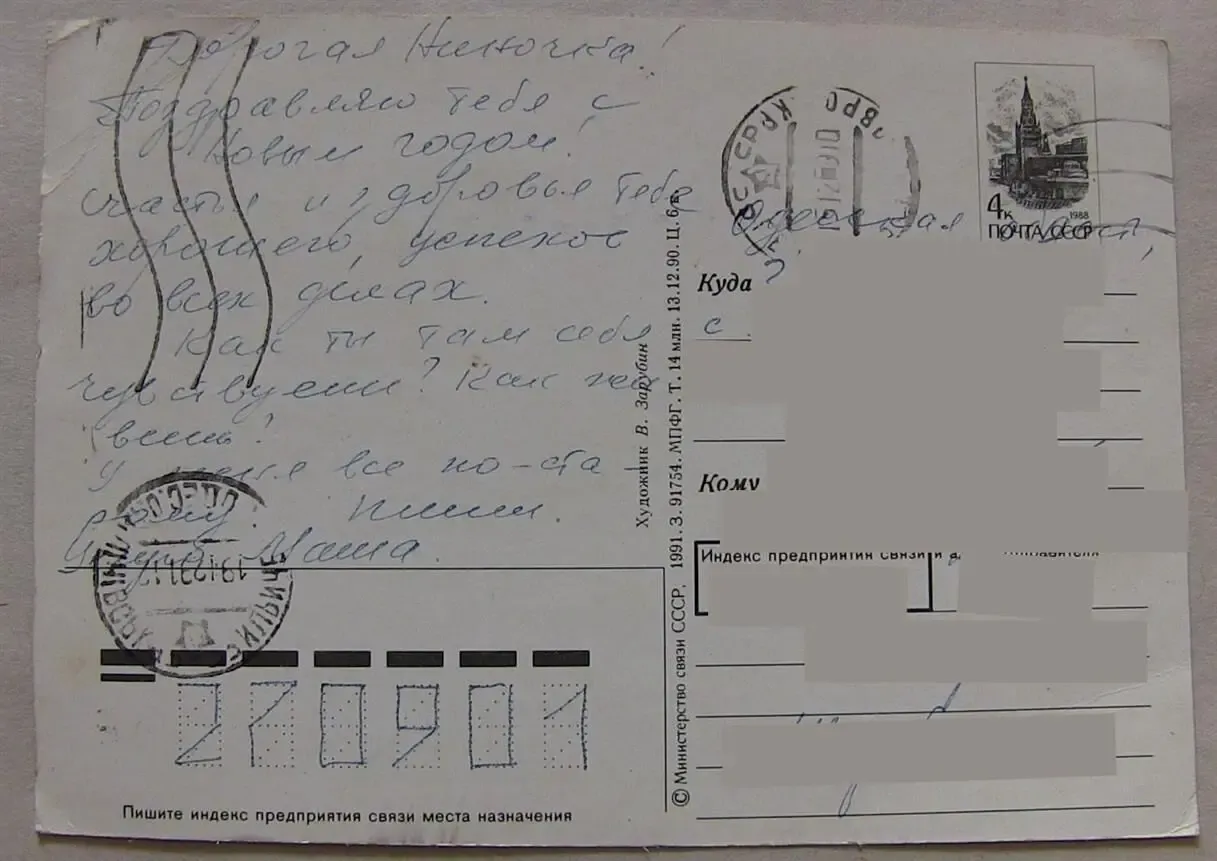 Дорогая Ниночка!
Поздравляю тебя с
Новым годом!
Счастья и здоровья тебе
хорошего, успехов
во всех делах.
Как ты там себя
чувствуеш? Как жи
вешь?
У меня все по-ста-
рому. Пиши.
Маша.
19 12 91 17
270901
Пишите индекс предприятия связи места назначения
Художник В. Зарубин
© Министерство связи СССР, 1991. З. 91754. МПФГ. Т. 14 млн. 13.12.90. Ц. 6 к.
4к
1988
ПОЧТА СССР
Одесская област,
Куда
с.
Кому
Индекс предприятия связи и